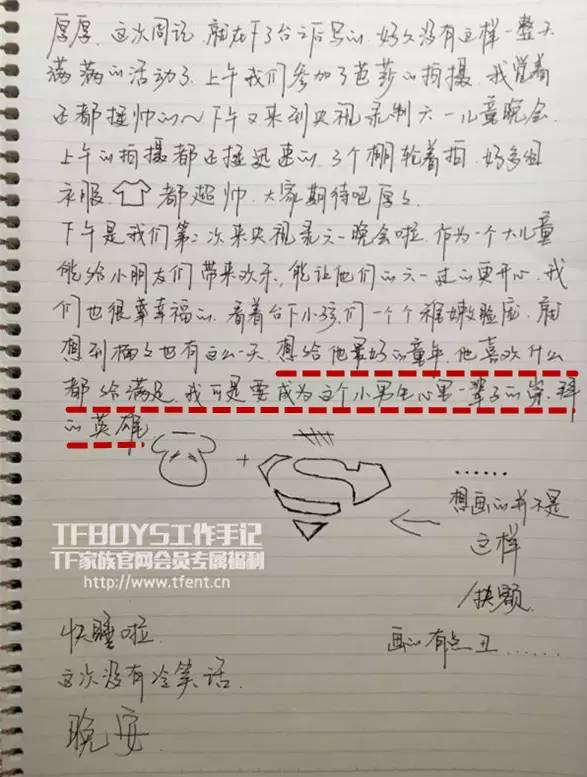 厚厚.这次周记.就在下了台之后写的.好久没有这样一整天
满满的活动了.上午我们参加了芭莎的拍摄.我觉着
还都挺帅的～下午又来到央视录制六一儿童晚会.
上午的拍摄都还挺迅速的.3个棚轮着拍.好多组
衣服.都超帅.大家期待吧厚厚.
下午是我们第二次来央视录六一晚会啦.作为一个大儿童
能给小朋友们带来欢乐.能让他们的六一过的更开心.我
们也很幸幸福的.看着台下小孩们一个个稚嫩脸庞.就
想到楠楠也有这么一天.想给他最好的童年.他喜欢什么
都给满足.我可是要成为这个小男生心里一辈子的崇拜
的英雄
+
S
......
想画的并不是
这样
捂额.
画的有点丑......
TFBOYS工作手记
TF家族官网会员专属福利
http://www.tfent.cn
快睡啦.
这次没有冷笑话.
晚安.